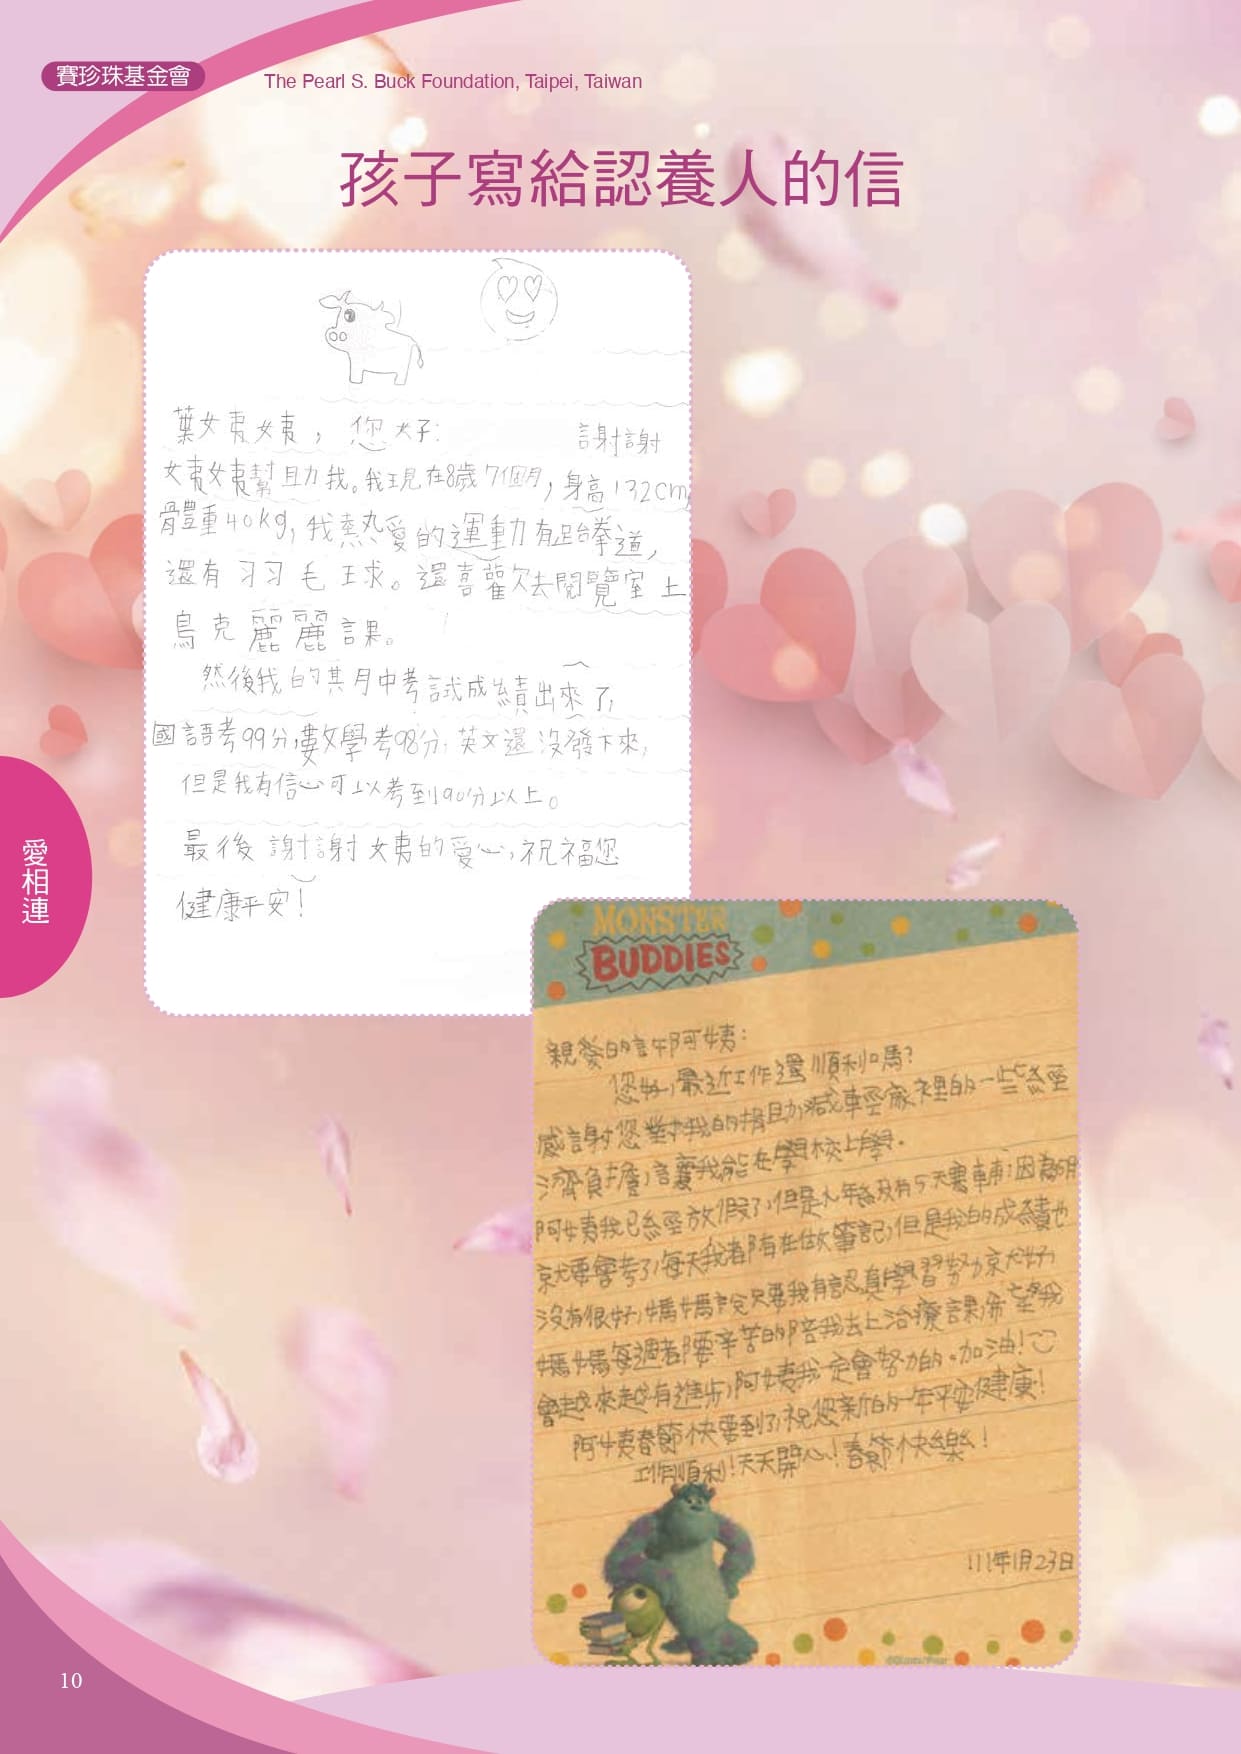 賽珍珠基金會
The Pearl S. Buck Foundation, Taipei, Taiwan
孩子寫給認養人的信
葉姨姨，您好：
謝謝
姨姨幫助我。我現在8歲7個月，身高132cm,
體重40kg，我熱愛的運動有跆拳道，
還有羽毛球。還喜歡去閱覽室上
烏克麗麗課。
然後我的其月中考試成績出來了，
國語考99分，數學考98分，英文還沒發下來，
但是我有信心可以考到90分以上。
最後謝謝姨的愛心，祝福您
健康平安！
MONSTER
BUDDIES
親愛的許阿姨：
您好，最近工作還順利嗎？
感謝您對我的捐助，減輕家裡的一些經
濟負擔，讓我能在學校上學。
阿姨我已經放假了，但是九年級有5天寒輔，因為5月
就要會考了，每天我都有在做筆記，但是我的成績也
沒有很好，媽媽說只要我有認真學習努力就好
媽媽每週都要辛苦的陪我去上治療課，希望我
會越來越有進步，阿姨我一定會努力的。加油！
阿姨春節快要到了，祝您新的一年平安健康！
工作順利！天天開心！春節快樂！
111年1月23日
愛相連
10